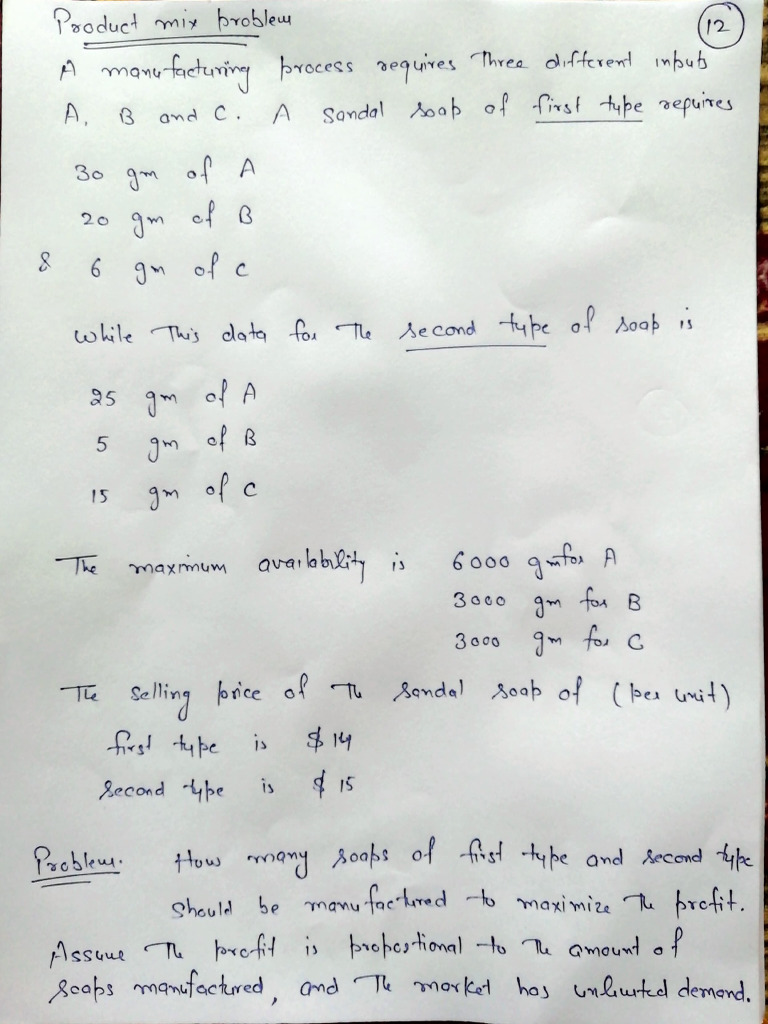 Product mix problem
12
A manufacturing process requires Three different inputs
A, B and C. A Sandal soap of first type requires
30 gm of A
20 gm of B
& 6 gm of C
While This data for The second type of soap is
25 gm of A
5 gm of B
15 gm of C
The maximum availability is 6000 gm for A
3000 gm for B
3000 gm for C
The Selling price of The Sandal soap of (per unit)
first type is $ 14
Second type is $ 15
Problem. How many soaps of first type and second type
should be manufactured to maximize The profit.
Assume The profit is propostional to The amount of
Soaps manufactured, and The market has unlimited demand.